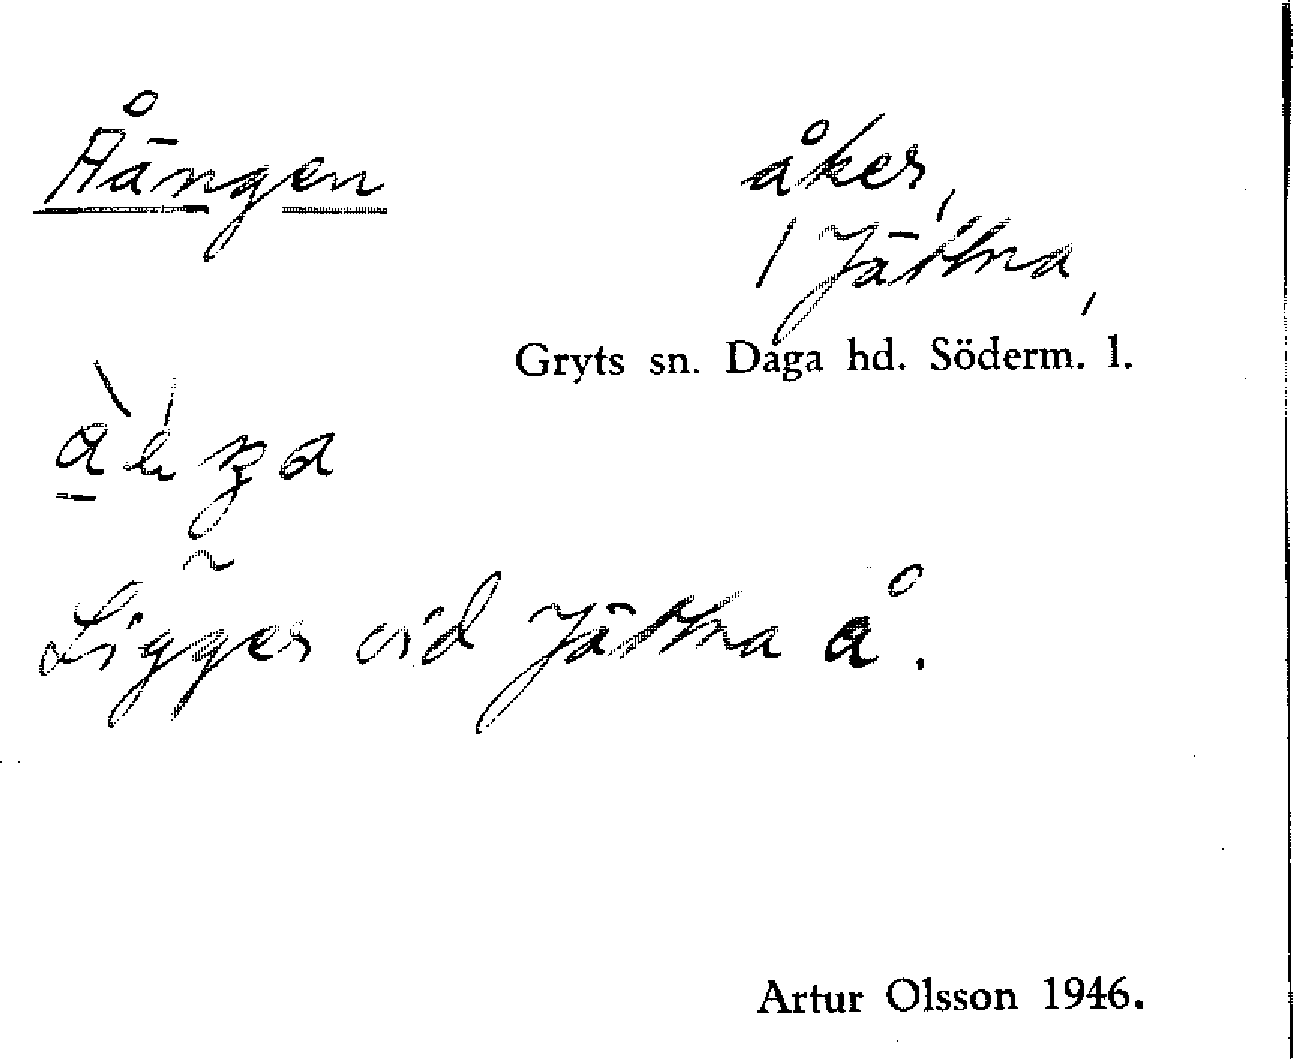 Åängen
åker,
Jättna,
Gryts sn. Daga hd. Söderm. l.
Ligger vid Jättna å.
Artur Olsson 1946.